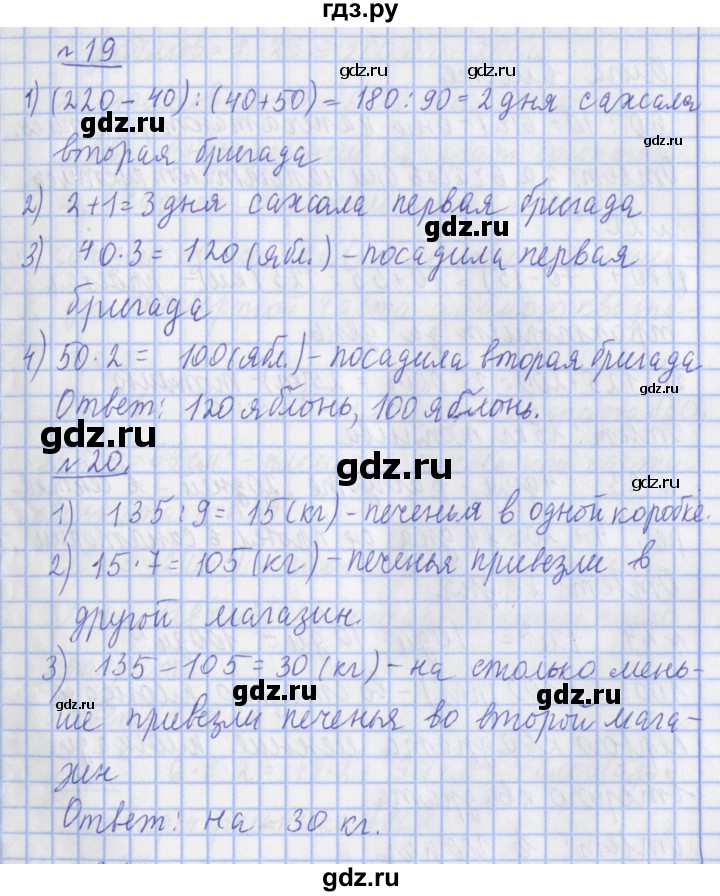 гдз.ру
№ 19
1) (220 – 40) : (40+50) = 180 : 90 = 2 дня сажала
gdz.ru
gdz.ru
вторая бригада
gdz.ru
2) 2+1=3 дня сажала первая бригада
gdz.ru
3) 40·3 = 120 (ябл.) – посадила первая
gdz.ru
бригада
gdz.ru
4) 50·2 = 100 (ябл.) – посадила вторая бригада
gdz.ru
Ответ: 120 яблонь, 100 яблонь.
gdz.ru
№ 20.
gdz.ru
gdz.ru
1) 135 : 9 = 15 (кг) – печенья в одной коробке.
2) 15·7 = 105 (кг) – печенья привезли в
gdz.ru
gdz.ru
другой магазин.
3) 135 – 105 = 30 (кг) – на столько мень-
gdz.ru
gdz.ru
ше привезли печенья во второй мага-
зин
Ответ: на 30 кг.
gdz.ru
gdz.ru
gdz.ru